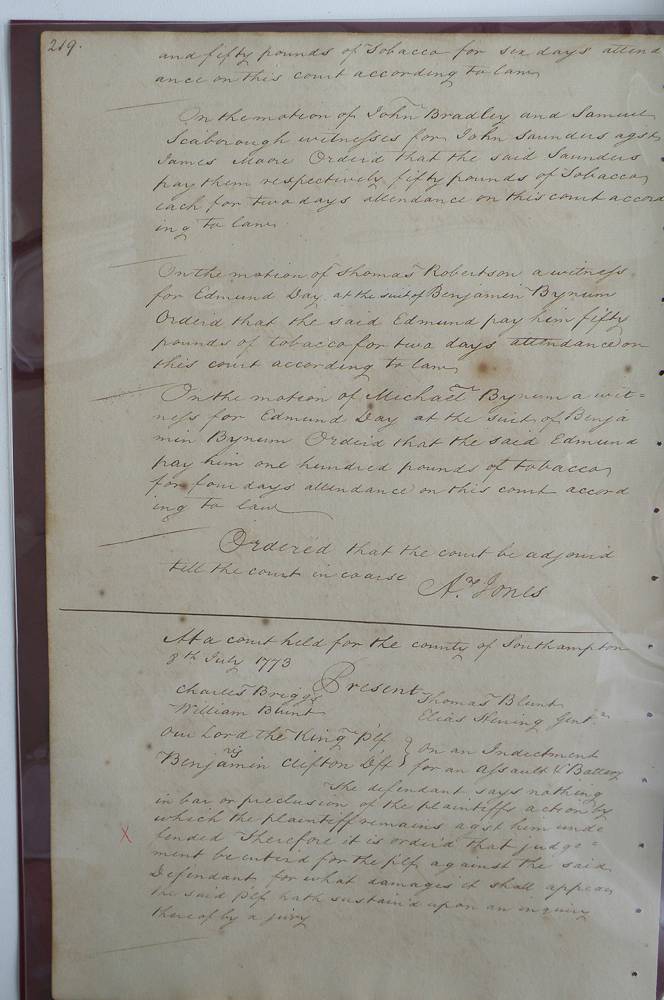 219.
and fifty pounds of Tobacco for six days attend
ance on this court according to law
On the motion of John Bradley and Samuel
Scaborough witnesses for John Saunders agst
James Moore Orderd that the said Saunders
pay them respectively fifty pounds of Tobacco
each for two days attendance on this court accord
ing to law
On the motion of Thomas Robertson a witness
for Edmund Day at the suit of Benjamin Bynum
Orderd that the said Edmund pay him fifty
pounds of tobacco for two days attendance on
this court according to law
On the motion of Michael Bynum a wit=
ness for Edmund Day at the suit of Benja
min Bynum Orderd that the said Edmund
pay him one hundred pounds of tobacco
for four days attendance on this court accord
ing to law
Ordered that the court be adjournd
till the court in coarse
A. Jones
At a court held for the county of Southampton
8th July 1773
Present
Charles Briggs Thomas Blunt
William Blunt Elias Gent.
Our Lord the King Plf
vs
Benjamin Clifton Dft
on an Indictment
for an assault & Battery
The defendant says nothing
in bar or preclusion of the plaintiffs action by
which the plaintiff remains agst him unde
fended Therefore it is orderd that judge=
ment be enterd for the plf against the said
Defendant for what damages it shall appear
the said Plf hath sustain'd upon an inquiry
thereof by a jury
X